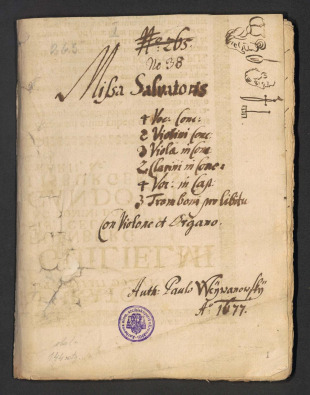 265
N: 265.
No 38
Missa Salvatoris
4 Voc: Conc:
2 Violini Conc
3 Viola in Conc
2 Clarini in Conc:
4 Voc: in Cap
3 Tromboni pro libitu
Con Violone et Organo.
GUILIELMI
Auth: Paulo Weÿwanowskÿ
Aº 1677.
1